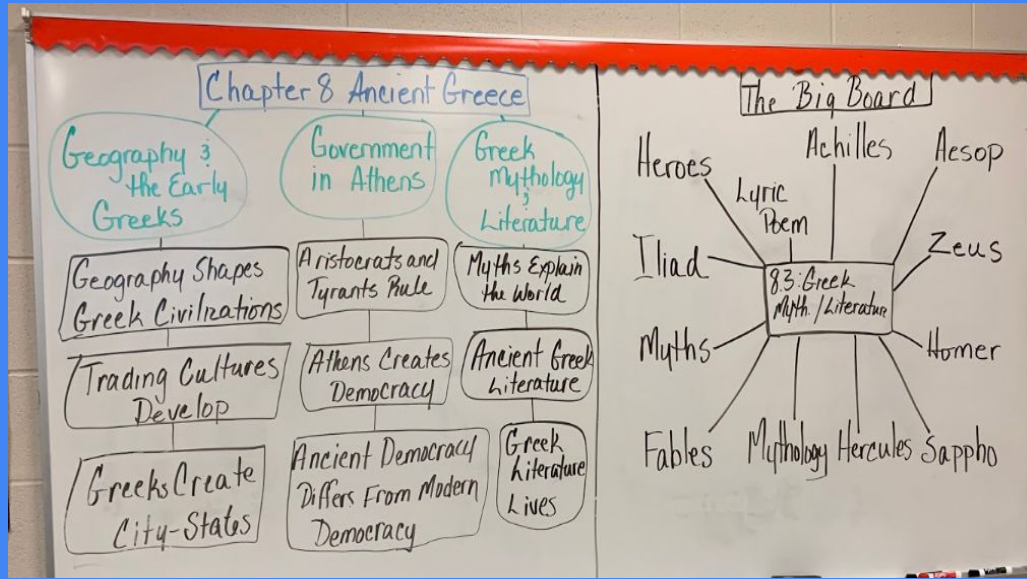 Chapter 8 Ancient Greece
Geography &
the Early
Greeks
Geography Shapes
Greek Civilizations
Trading Cultures
Develop
Greeks Create
City-States
Government
in Athens
Aristocrats and
Tyrants Rule
Athens Creates
Democracy
Ancient Democracy
Differs From Modern
Democracy
Greek
Mythology
&
Literature
Myths Explain
the World
Ancient Greek
Literature
Greek
Literature
Lives
The Big Board
Heroes
Achilles
Aesop
Lyric
Poem
Iliad
Zeus
8.3: Greek
Myth. / Literature
Myths
Homer
Fables
Mythology
Hercules
Sappho